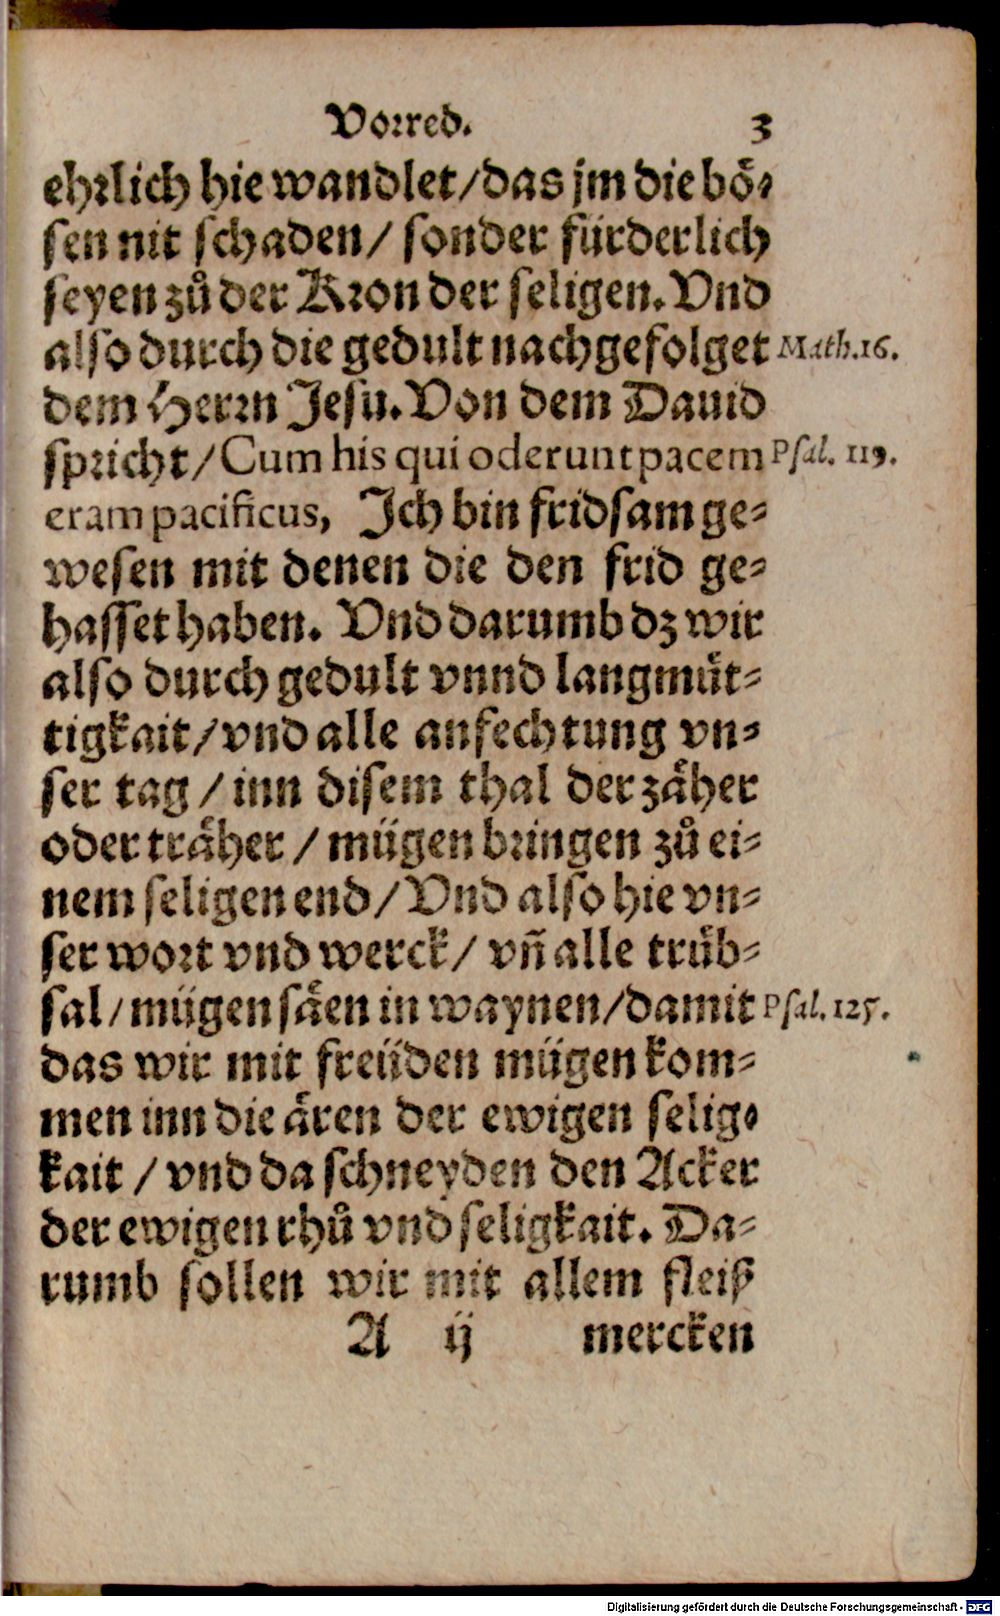 Vorred. 3
ehrlich hie wandlet/das jm die bö-
sen nit schaden/ sonder fürderlich
seyen zů der Kron der seligen. Vnd
also durch die gedult nachgefolget Math.16.
dem Herrn Jesu. Von dem Dauid
spricht/Cum his qui oderunt pacem Psal. 119.
eram pacificus, Ich bin fridsam ge-
wesen mit denen die den frid ge-
hasset haben. Vnd darumb dz wir
also durch gedult vnnd langmüt-
tigkait/vnd alle anfechtung vn-
ser tag / inn disem thal der zäher
oder träher / mügen bringen zů ei-
nem seligen end/Vnd also hie vn-
ser wort vnd werck/ vñ alle trüb-
sal/mügen säen in waynen/damit Psal. 125.
das wir mit freüden mügen kom-
men inn die ären der ewigen selig-
kait / vnd da schneyden den Acker
der ewigen rhů vnd seligkait. Da-
rumb sollen wir mit allem fleiß
A ij mercken
Digitalisierung gefördert durch die Deutsche Forschungsgemeinschaft - DFG